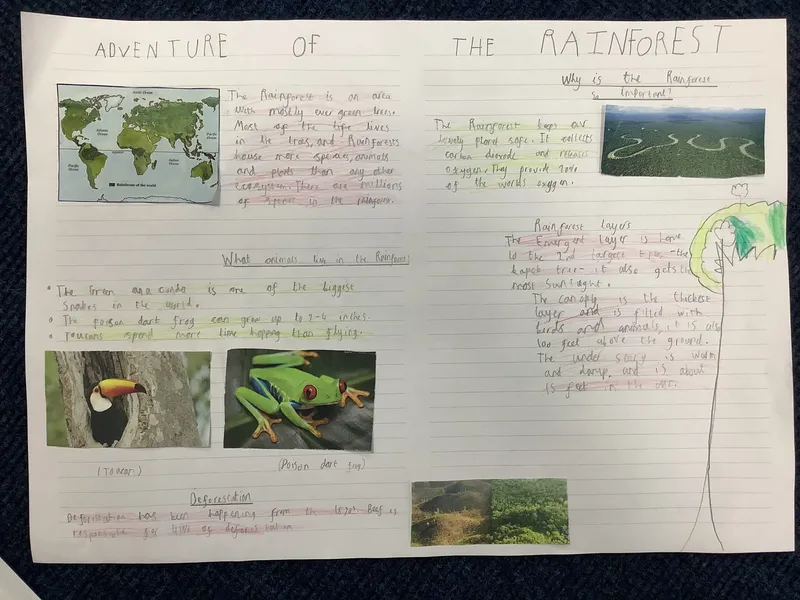 ADVENTURE OF THE RAINFOREST
The Rainforest is an area
with mostly ever green trees.
Most of the life lives
in the trees, and Rainforests
house more species, animals
and plants than any other
ecosystem. There are millions
of in the rainforest.
Arctic Ocean
Atlantic Ocean
Pacific Ocean
Pacific Ocean
Indian Ocean
Rainforests of the world
What animals live in the Rainforest
The Green ana conda is one of the biggest
Snakes in the world.
The poison dart frog can grow up to 2-6 inches.
Toucans spend more time hopping than flying.
(Toucan)
(Poison dart frog)
Deforestation
has been happening from the Beef is
responsible for 41% of
Why is the Rainforest
So Important?
The Rainforest keeps our
lovely planet safe. It collects
carbon dioxide and releases
oxygen. They provide
of the worlds oxygen.
Rainforest layers
The Emergent layer is home
to the 2nd largest the
kapok tree - it also gets the
most Sunlight.
The canopy is the thickest
layer and is filled with
birds and animals, it is also
100 feet above the ground.
The under story is warm
and damp and is about
15 feet in the air.